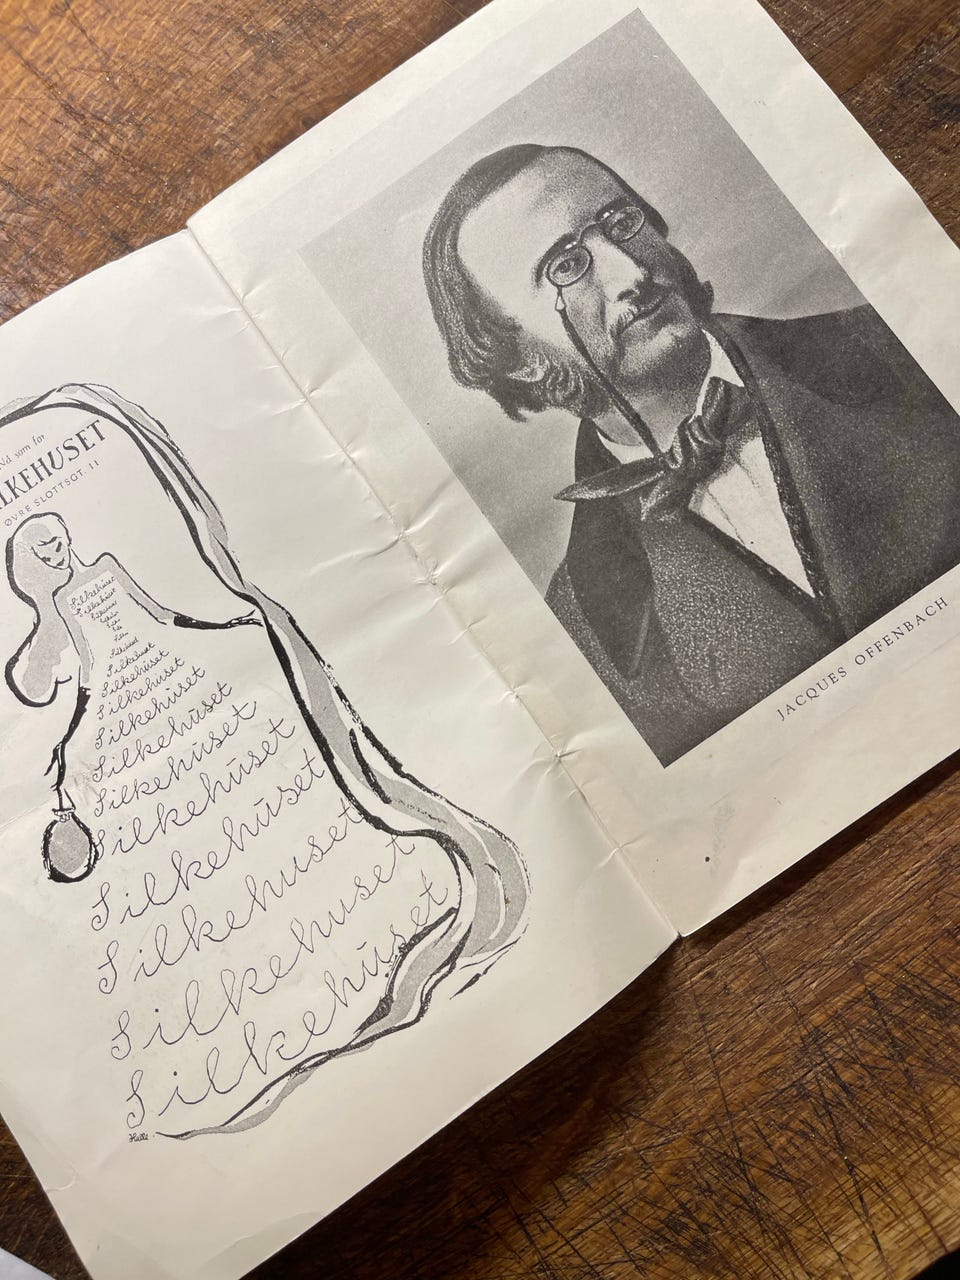 LKEHUSET
ØVRE SLOTTSGT. 11
Silkehuset
Silkehuset
Silkehuset
Silkehuset
Silkehuset
Silkehuset
Silkehuset
Silkehuset
Silkehuset
Silkehuset
Silkehuset
Silkehuset
Silkehuset
Silkehuset
JACQUES OFFENBACH